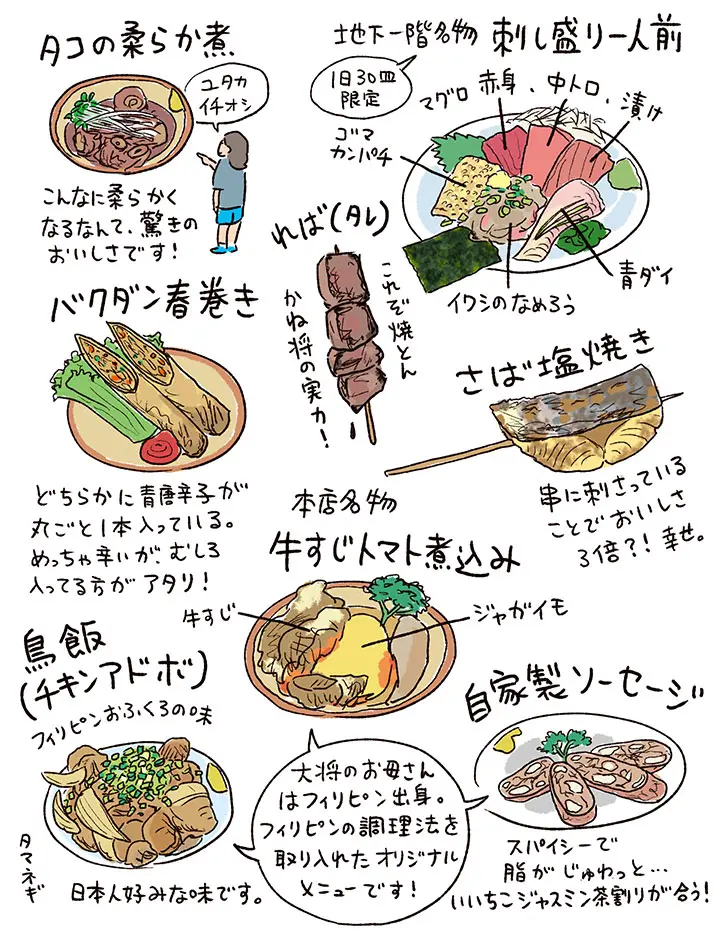 タコの柔らか煮
ユタカ
イチオシ
こんなに柔らかく
なるなんて、驚きの
おいしさです!
地下一階名物
刺し盛り一人前
1日30皿
限定
マグロ 赤身、中トロ、漬け
ゴマ
カンパチ
イワシのなめろう
青ダイ
れば(タレ)
これぞ焼とん
かね将の実力!
バクダン春巻き
どちらかに青唐辛子が
丸ごと1本入っている。
めっちゃ辛いが、むしろ
入ってる方がアタリ!
さば塩焼き
串に刺さっている
ことでおいしさ
3倍?!幸せ。
本店名物
牛すじトマト煮込み
牛すじ
ジャガイモ
鳥飯
(チキンアドボ)
フィリピンおふくろの味
タマネギ
日本人好みな味です。
大将のお母さん
はフィリピン出身。
フィリピンの調理法を
取り入れたオリジナル
メニューです!
自家製ソーセージ
スパイシーで
脂がじゅわっと…
いいちこジャスミン茶割りが合う!